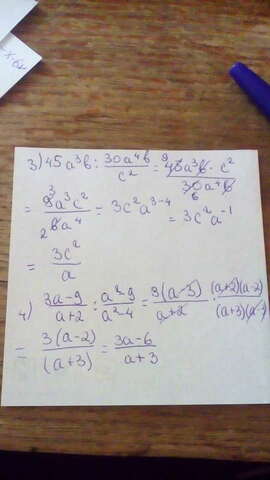 3) 45a³b : 30a⁴b/c² = 45a³b · c²/30a⁴b
9
6
= 9a³c²/6a⁴ = 3c²a³⁻⁴ = 3c²a⁻¹
3
2
= 3c²/a
4) 3a-9/a+2 : a²-9/a²-4 = 3(a-3)/a+2 · (a+2)(a-2)/(a+3)(a-
= 3(a-2)/(a+3) = 3a-6/a+3